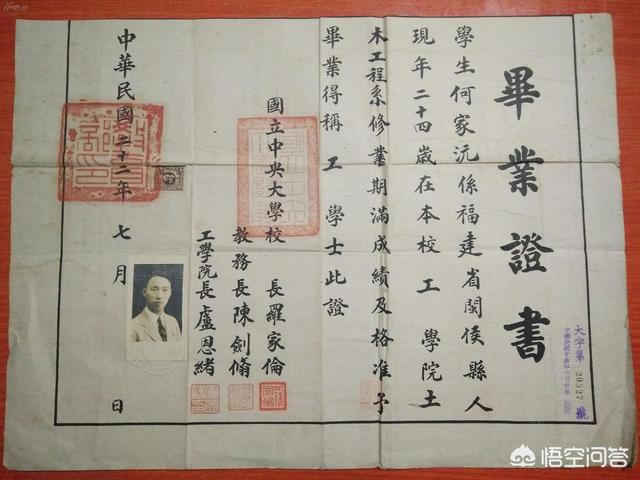 畢業證書
學生何家沅係福建省閩侯縣人
現年二十四歲在本校工學院土
木工程系修業期滿成績及格准予
畢業得稱工學士此證
國立中央大學校長羅家倫
教務長陳劍脩
工學院長盧恩緒
中華民國二十二年七月 日
大字第20527號
悟空问答